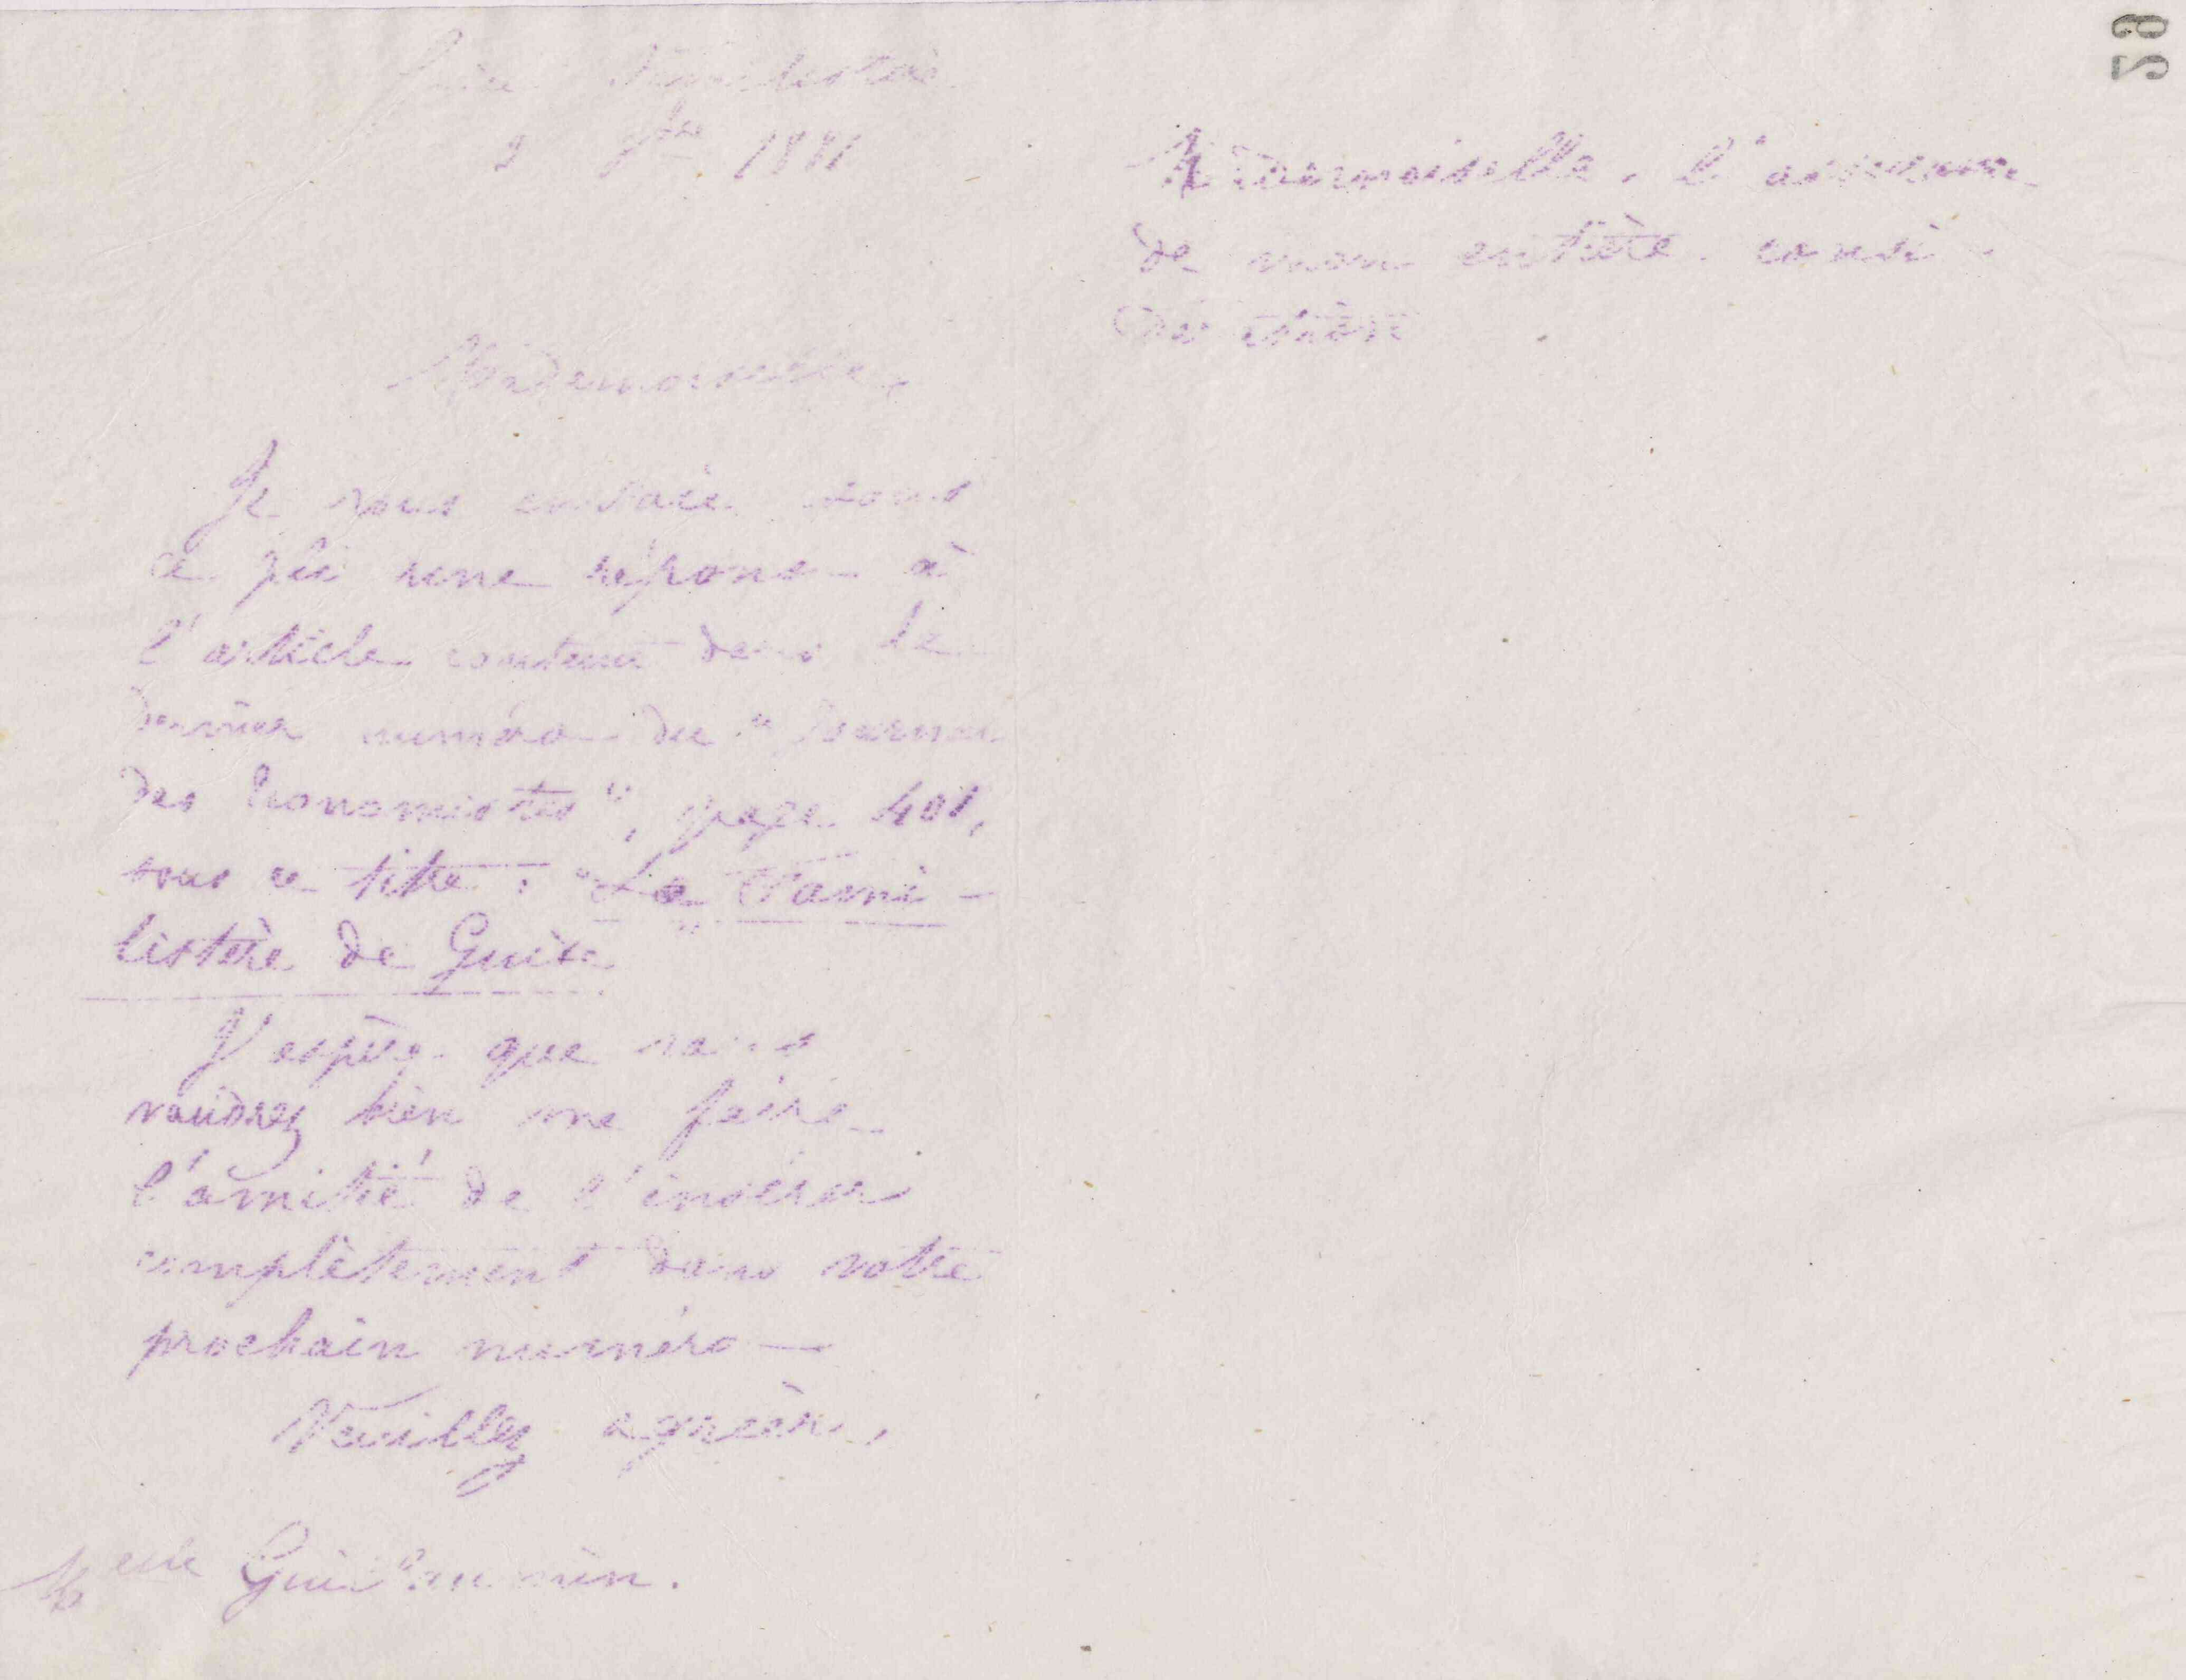 Guise Familistère
2 9bre 1881
Mademoiselle,
Je vous envoie sous
ce pli une réponse à
l'article contenu dans le
dernier numéro du "Journal
des Économistes", page 401,
sous ce titre : "Le Fami-
listère de Guise
J'espère que vous
voudrez bien me faire
l'amitié de l'insérer
complètement dans votre
prochain numéro —
Veuillez agréer,
Melle Guillaumin.
Mademoiselle, l'assurance
de mon entière consi-
dération